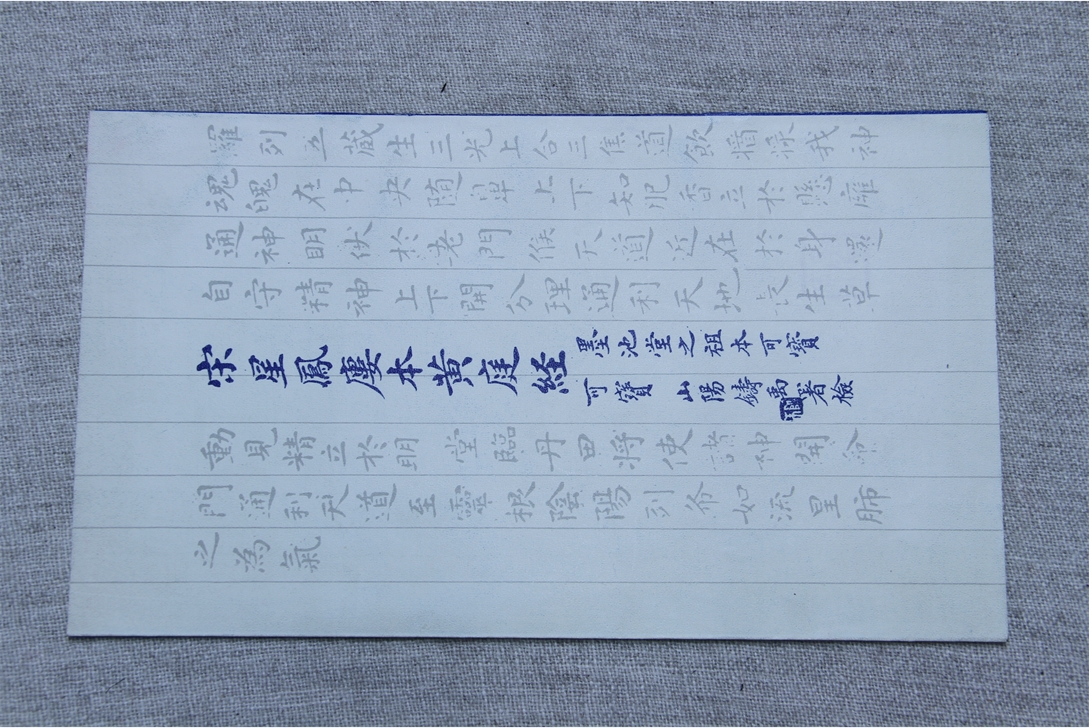 羅列五蔵生三光上合三焦道飲醬漿我神
魂魄在中央随鼻上下知肥香立於懸雍
通神明伏於老門候天道近在於身還
自守精神上下開分理通利天地長生草
宋星鳳廔本黄庭经
墨池堂之祖本可寶
可寶 山陽鑄禹署檢
動見精立於明堂臨丹田将使諸神開命
門通利天道至靈根陰陽列布如流星肺
之為氣